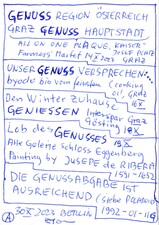 GENUSS REGION ÖSTERREICH
GRAZ GENUSS HAUPTSTADT
ALL ON ONE PLAQUE, KAISER-
Farmers' Market 14 X 2023 JOSEF PLATZ
GRAZ
UNSER GENUSS VERSPRECHEN
byodo bio vom feinsten (cooking
oil, GRAZ
Den Winter zuhause 16 X
GENIESSEN Interspar Graz
Gösting 18 X
Lob des GENUSSES 19 X
Alte Galerie Schloss Eggenberg
Painting by JUSEPE de RIBERA
1591-1652
DIE GENUSSABGABE IST
AUSREICHEND (siehe
30 X 2023 BERLIN 1992-01-11
A